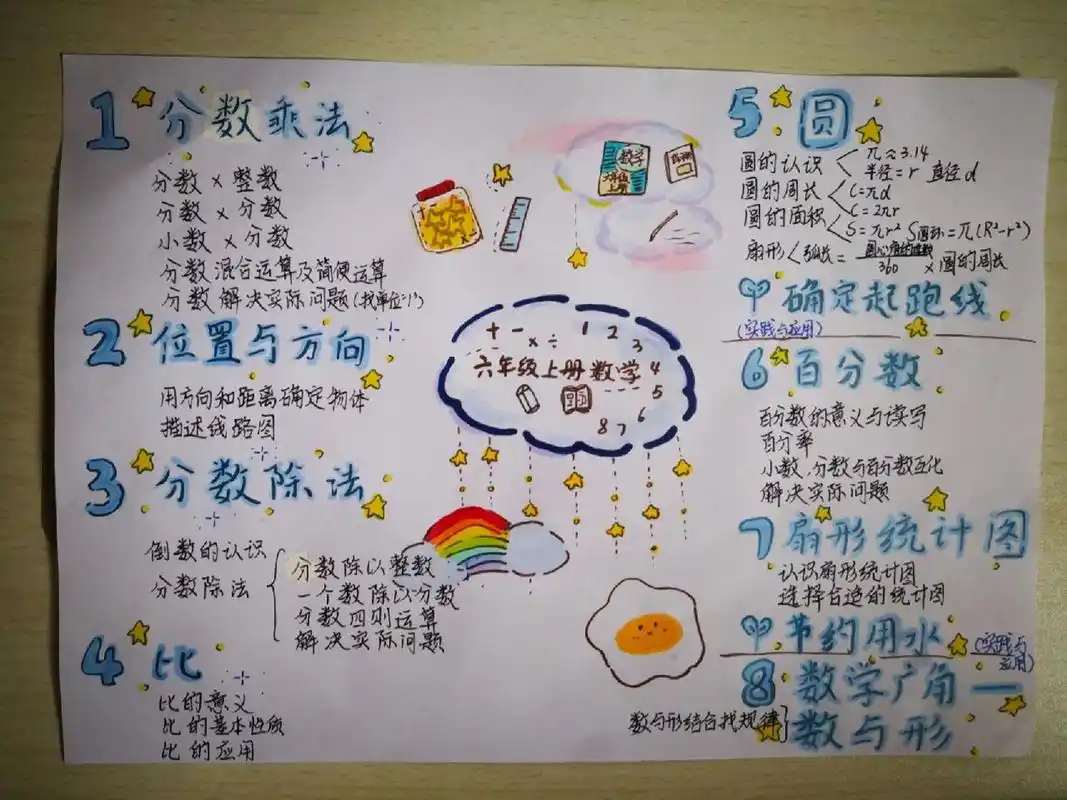 1 分数乘法
分数×整数
分数×分数
小数×分数
分数混合运算及简便运算
分数解决实际问题(找单位"1")
2 位置与方向
用方向和距离确定物体
描述线路图
3 分数除法
倒数的认识
分数除法
分数除以整数
一个数除以分数
分数四则运算
解决实际问题
4 比
比的意义
比的基本性质
比的应用
数学
六年级
上册
+ - × ÷ 1 2 3 4 5 6 7 8
六年级上册数学
5 圆
圆的认识 π≈3.14
半径=r 直径d
圆的周长 C=πd
C=2πr
圆的面积 S=πr² S圆环=π(R²-r²)
扇形 弧长=圆心角的度数/360×圆的周长
确定起跑线
(实践与应用)
6 百分数
百分数的意义与读写
百分率
小数、分数与百分数互化
解决实际问题
7 扇形统计图
认识扇形统计图
选择合适的统计图
节约用水
(实践与应用)
8 数学广角—
数与形
数与形结合找规律